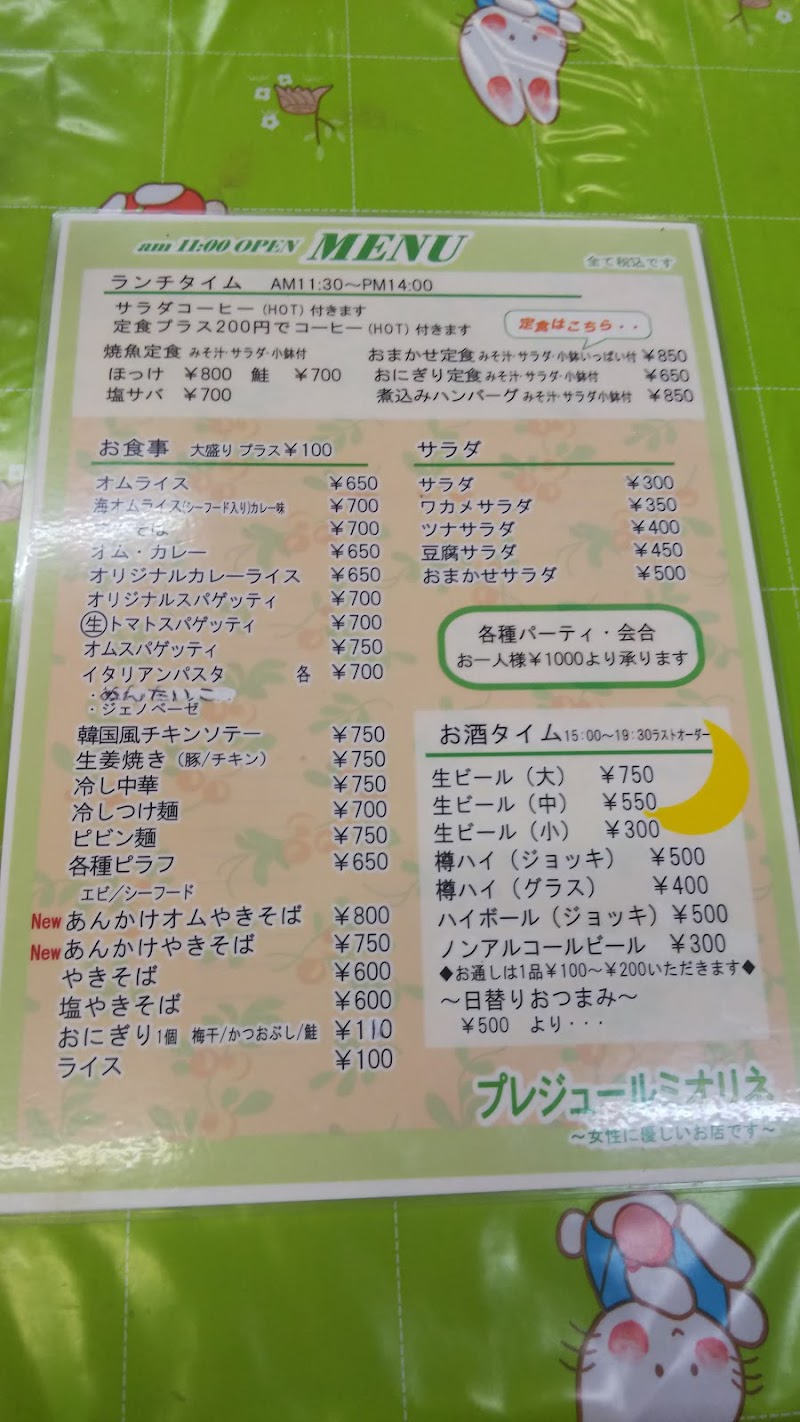 am 11:00 OPEN MENU
全て税込です
ランチタイム AM11:30～PM14:00
サラダコーヒー(HOT)付きます
定食プラス200円でコーヒー(HOT)付きます
定食はこちら・・
焼魚定食 みそ汁・サラダ・小鉢付
ほっけ ¥800 鮭 ¥700
塩サバ ¥700
おまかせ定食 みそ汁・サラダ・小鉢いっぱい付 ¥850
おにぎり定食 みそ汁・サラダ・小鉢付 ¥650
煮込みハンバーグ みそ汁・サラダ小鉢付 ¥850
お食事 大盛り プラス¥100
オムライス ¥650
海オムライス(シーフード入り)カレー味 ¥700
そば ¥700
オム・カレー ¥650
オリジナルカレーライス ¥650
オリジナルスパゲッティ ¥700
㊤トマトスパゲッティ ¥700
オムスパゲッティ ¥750
イタリアンパスタ 各 ¥700
・めんたいこ
・ジェノベーゼ
韓国風チキンソテー ¥750
生姜焼き（豚/チキン） ¥750
冷し中華 ¥750
冷しつけ麺 ¥700
ピビン麺 ¥750
各種ピラフ ¥650
エビ/シーフード
New あんかけオムやきそば ¥800
New あんかけやきそば ¥750
やきそば ¥600
塩やきそば ¥600
おにぎり1個 梅干/かつおぶし/鮭 ¥110
ライス ¥100
サラダ
サラダ ¥300
ワカメサラダ ¥350
ツナサラダ ¥400
豆腐サラダ ¥450
おまかせサラダ ¥500
各種パーティ・会合
お一人様¥1000より承ります
お酒タイム 15:00～19:30ラストオーダー
生ビール（大） ¥750
生ビール（中） ¥550
生ビール（小） ¥300
樽ハイ（ジョッキ） ¥500
樽ハイ（グラス） ¥400
ハイボール（ジョッキ） ¥500
ノンアルコールビール ¥300
◆お通しは1品¥100～¥200いただきます◆
～日替りおつまみ～
¥500 より・・・
プレジュールミオリネ
～女性に優しいお店です～